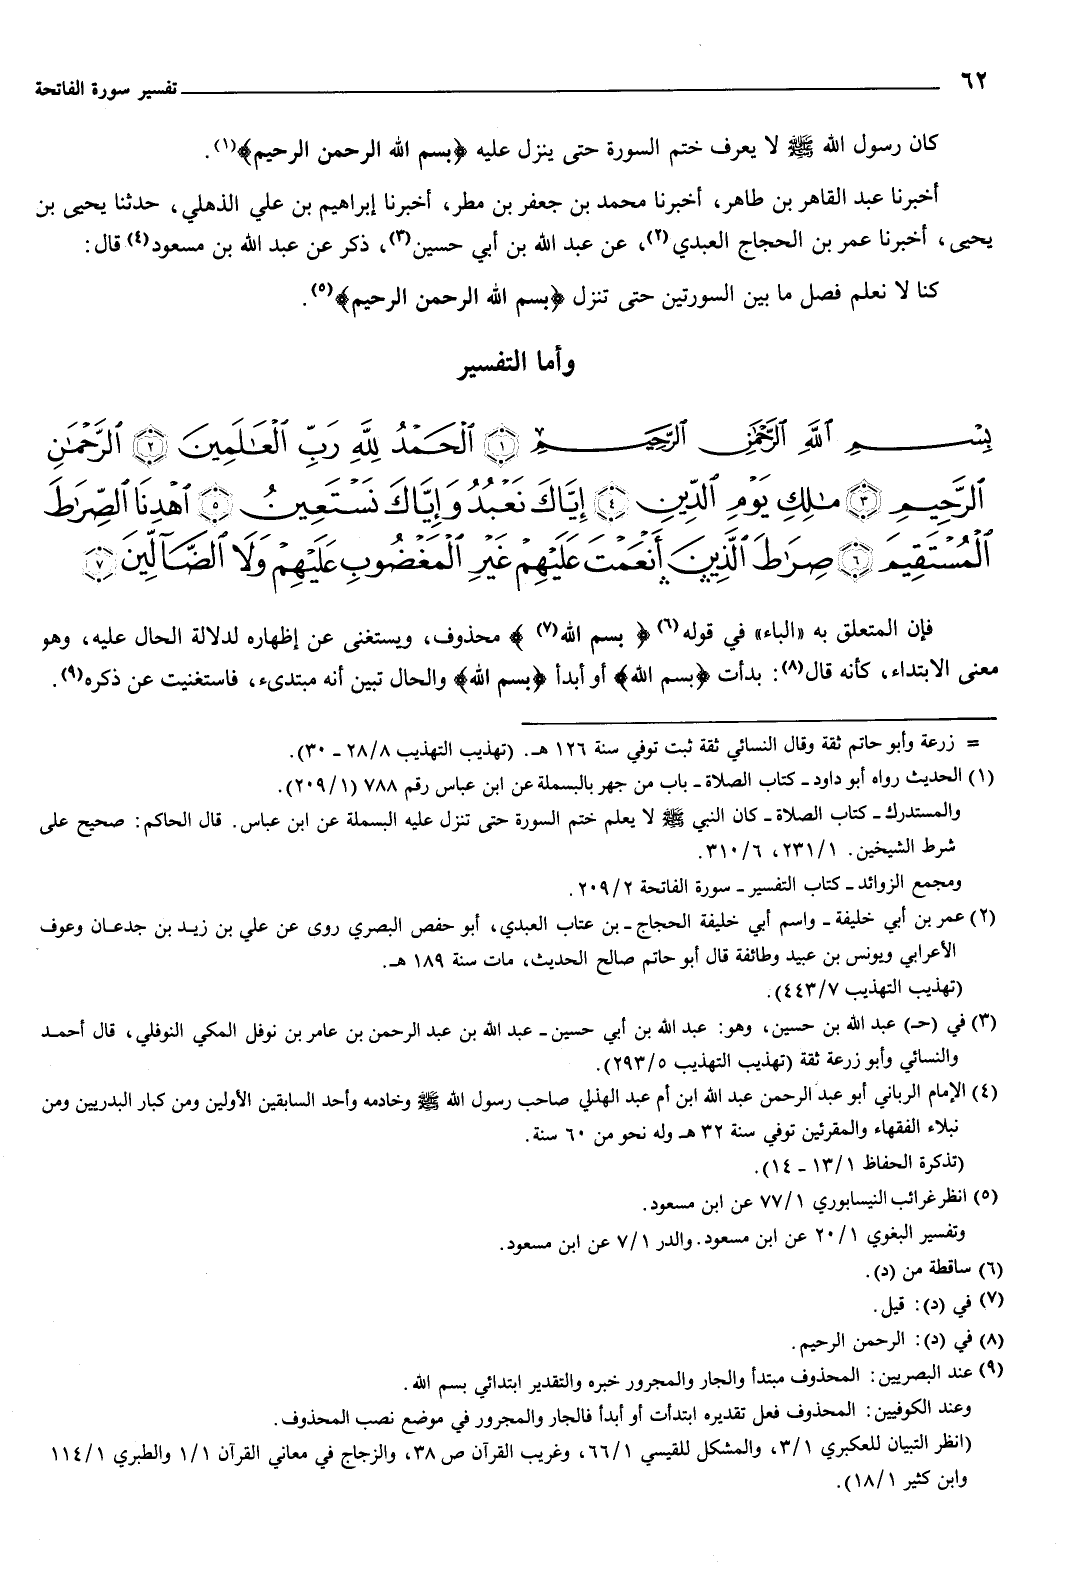 ٦٢ تفسير سورة الفاتحة
كان رسول الله ﷺ لا يعرف ختم السورة حتى ينزل عليه ﴿بسم الله الرحمن الرحيم﴾(١).
أخبرنا عبد القاهر بن طاهر، أخبرنا محمد بن جعفر بن مطر، أخبرنا إبراهيم بن علي الذهلي، حدثنا يحيى بن
يحيى، أخبرنا عمر بن الحجاج العبدي(٢)، عن عبد الله بن أبي حسين(٣)، ذكر عن عبد الله بن مسعود(٤) قال:
كنا لا نعلم فصل ما بين السورتين حتى تنزل ﴿بسم الله الرحمن الرحيم﴾(٥).
وأما التفسير
بِسْمِ ٱللَّهِ ٱلرَّحْمَٰنِ ٱلرَّحِيمِ ١ ٱلْحَمْدُ لِلَّهِ رَبِّ ٱلْعَٰلَمِينَ ٢ ٱلرَّحْمَٰنِ
ٱلرَّحِيمِ ٣ مَٰلِكِ يَوْمِ ٱلدِّينِ ٤ إِيَّاكَ نَعْبُدُ وَإِيَّاكَ نَسْتَعِينُ ٥ ٱهْدِنَا ٱلصِّرَٰطَ
ٱلْمُسْتَقِيمَ ٦ صِرَٰطَ ٱلَّذِينَ أَنْعَمْتَ عَلَيْهِمْ غَيْرِ ٱلْمَغْضُوبِ عَلَيْهِمْ وَلَا ٱلضَّآلِّينَ ٧
فإن المتعلق به «الباء» في قوله(٦) ﴿ بسم الله(٧) ﴾ محذوف، ويستغنى عن إظهاره لدلالة الحال عليه، وهو
معنى الابتداء، كأنه قال(٨): بدأت ﴿بسم الله﴾ أو أبدأ ﴿بسم الله﴾ والحال تبين أنه مبتدىء، فاستغنيت عن ذكره(٩).
= زرعة وأبو حاتم ثقة وقال النسائي ثقة ثبت توفي سنة ١٢٦ هـ. (تهذيب التهذيب ٢٨/٨ ـ ٣٠).
(١) الحديث رواه أبو داود ـ كتاب الصلاة ـ باب من جهر بالبسملة عن ابن عباس رقم ٧٨٨ (٢٠٩/١).
والمستدرك ـ كتاب الصلاة ـ كان النبي ﷺ لا يعلم ختم السورة حتى تنزل عليه البسملة عن ابن عباس. قال الحاكم: صحيح على
شرط الشيخين. ٢٣١/١، ٣١٠/٦.
ومجمع الزوائد ـ كتاب التفسير ـ سورة الفاتحة ٢٠٩/٢.
(٢) عمر بن أبي خليفة ـ واسم أبي خليفة الحجاج ـ بن عتاب العبدي، أبو حفص البصري روى عن علي بن زيد بن جدعان وعوف
الأعرابي ويونس بن عبيد وطائفة قال أبو حاتم صالح الحديث، مات سنة ١٨٩ هـ.
(تهذيب التهذيب ٤٤٣/٧).
(٣) في (حـ) عبد الله بن حسين، وهو: عبد الله بن أبي حسين ـ عبد الله بن عبد الرحمن بن عامر بن نوفل المكي النوفلي، قال أحمد
والنسائي وأبو زرعة ثقة (تهذيب التهذيب ٢٩٣/٥).
(٤) الإمام الرباني أبو عبد الرحمن عبد الله ابن أم عبد الهذلي صاحب رسول الله ﷺ وخادمه وأحد السابقين الأولين ومن كبار البدريين ومن
نبلاء الفقهاء والمقرئين توفي سنة ٣٢ هـ وله نحو من ٦٠ سنة.
(تذكرة الحفاظ ١٣/١ ـ ١٤).
(٥) انظر غرائب النيسابوري ٧٧/١ عن ابن مسعود.
وتفسير البغوي ٢٠/١ عن ابن مسعود. والدر ٧/١ عن ابن مسعود.
(٦) ساقطة من (د).
(٧) في (د): قيل.
(٨) في (د): الرحمن الرحيم.
(٩) عند البصريين: المحذوف مبتدأ والجار والمجرور خبره والتقدير ابتدائي بسم الله.
وعند الكوفيين: المحذوف فعل تقديره ابتدأت أو أبدأ فالجار والمجرور في موضع نصب المحذوف.
(انظر التبيان للعكبري ٣/١، والمشكل للقيسي ٦٦/١، وغريب القرآن ص ٣٨، والزجاج في معاني القرآن ١/١ والطبري ١١٤/١
وابن كثير ١٨/١).